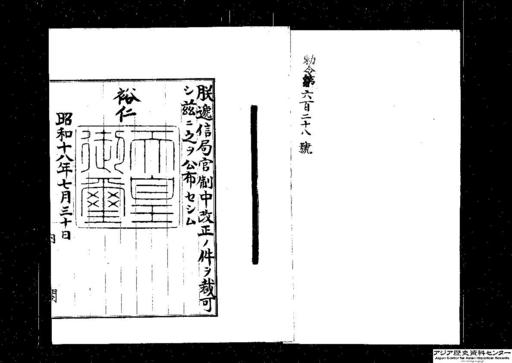 勅令第六百二十八號
朕遞信局官制中改正ノ件ヲ裁可
シ茲ニ之ヲ公布セシム
裕仁
天皇
御璽
昭和十八年七月三十日
内閣
アジア歴史資料センター
Japan Center for Asian Historical Records